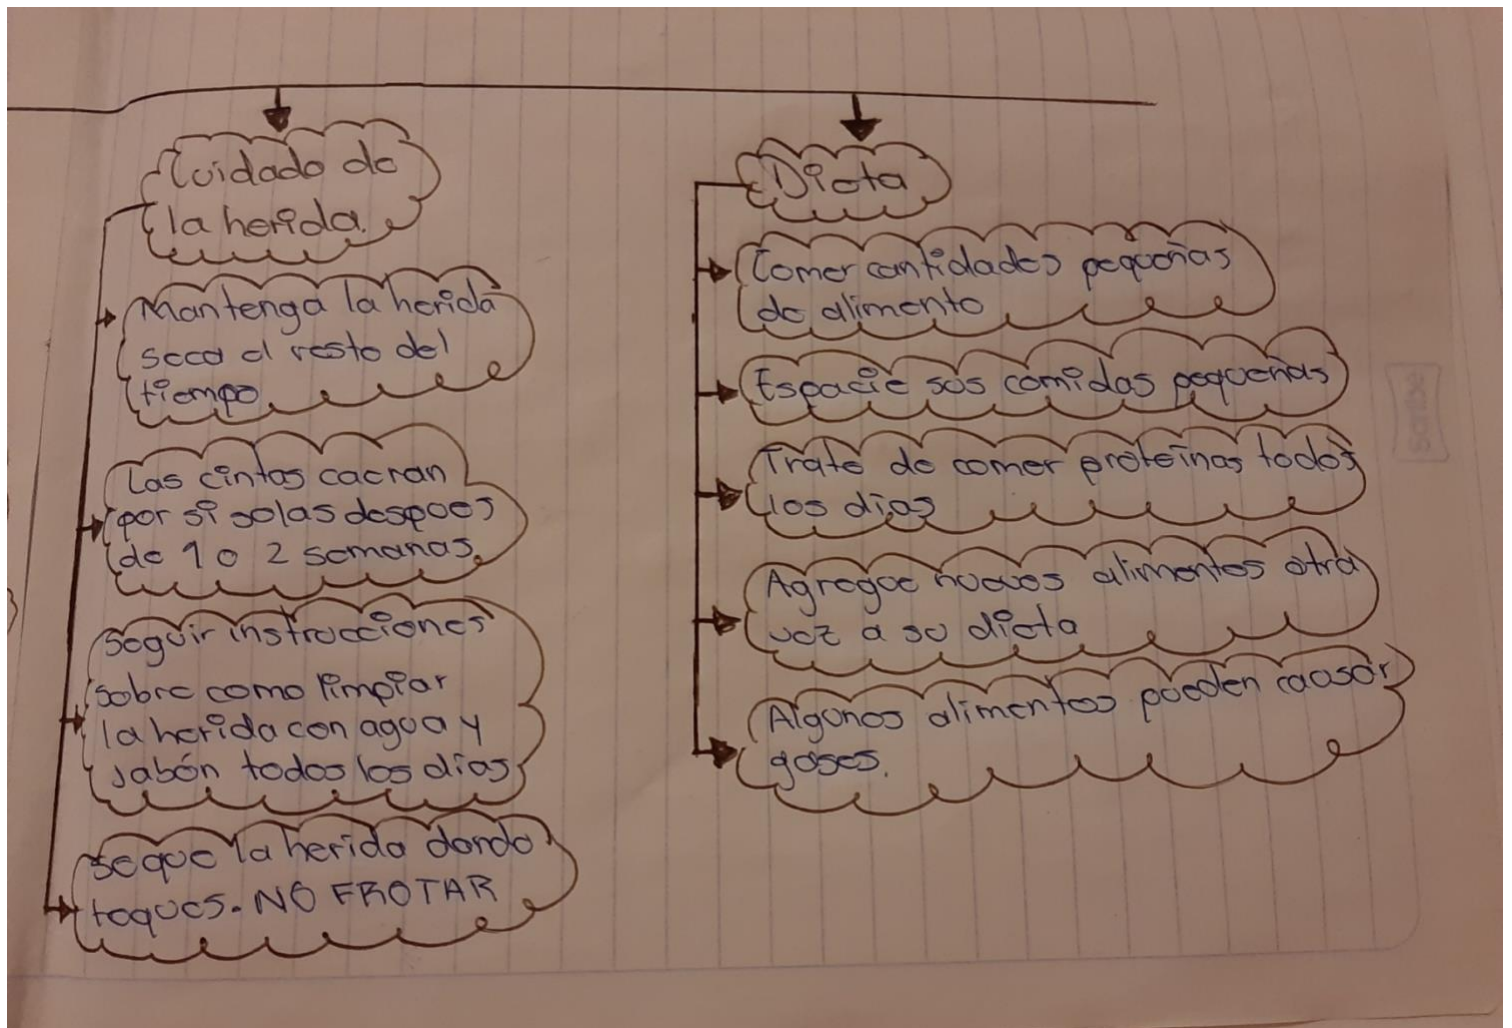 Cuidado de
la herida.
Mantenga la herida
seca el resto del
tiempo
Las cintas caeran
por si solas despues
de 1 o 2 semanas.
Seguir instrucciones
sobre como limpiar
la herida con agua y
Jabón todos los días
seque la herida dando
toques. NO FROTAR
Dieta
Comer cantidades pequeñas
de alimento
Espacie sus comidas pequeñas
Trate de comer proteínas todos
los días
Agregue nuevos alimentos otra
vez a su dieta
Algunos alimentos pueden causar
gases.
scribe